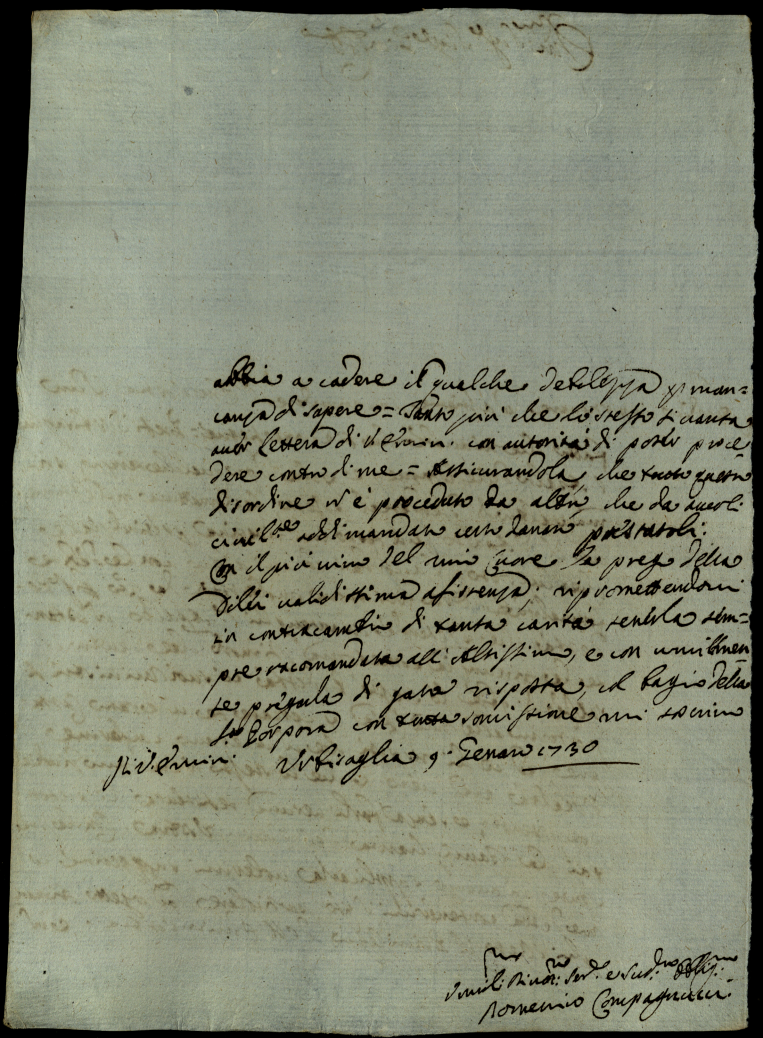 abbia a cadere i qualche debolezza p man=
canza di sapere = Tanto più che lo stesso si vanta
aver lettera di V. Emin: con autorità di poter proce=
dere contro di me = Assicurandola, che tutto questo
disordine è proceduto da altri, che da
addimandato certo danaro prestatoli:
Con il più vivo del mio Cuore la prego della
Di Lei validissima assistenza; ripromettendomi
in contracambio di tanta carità tenerla sem=
pre racomandata all'Altissimo, e con umilmen=
te pregarla di grata risposta, col bagio della
Porpora con tutta somissione mi soscrivo
Di V. Emin:
Urbisaglia 9: Genaro 1730
Umil:mo Divot:mo Ser:e e Sud:to Oblig:mo
Domenico Compagnucci: